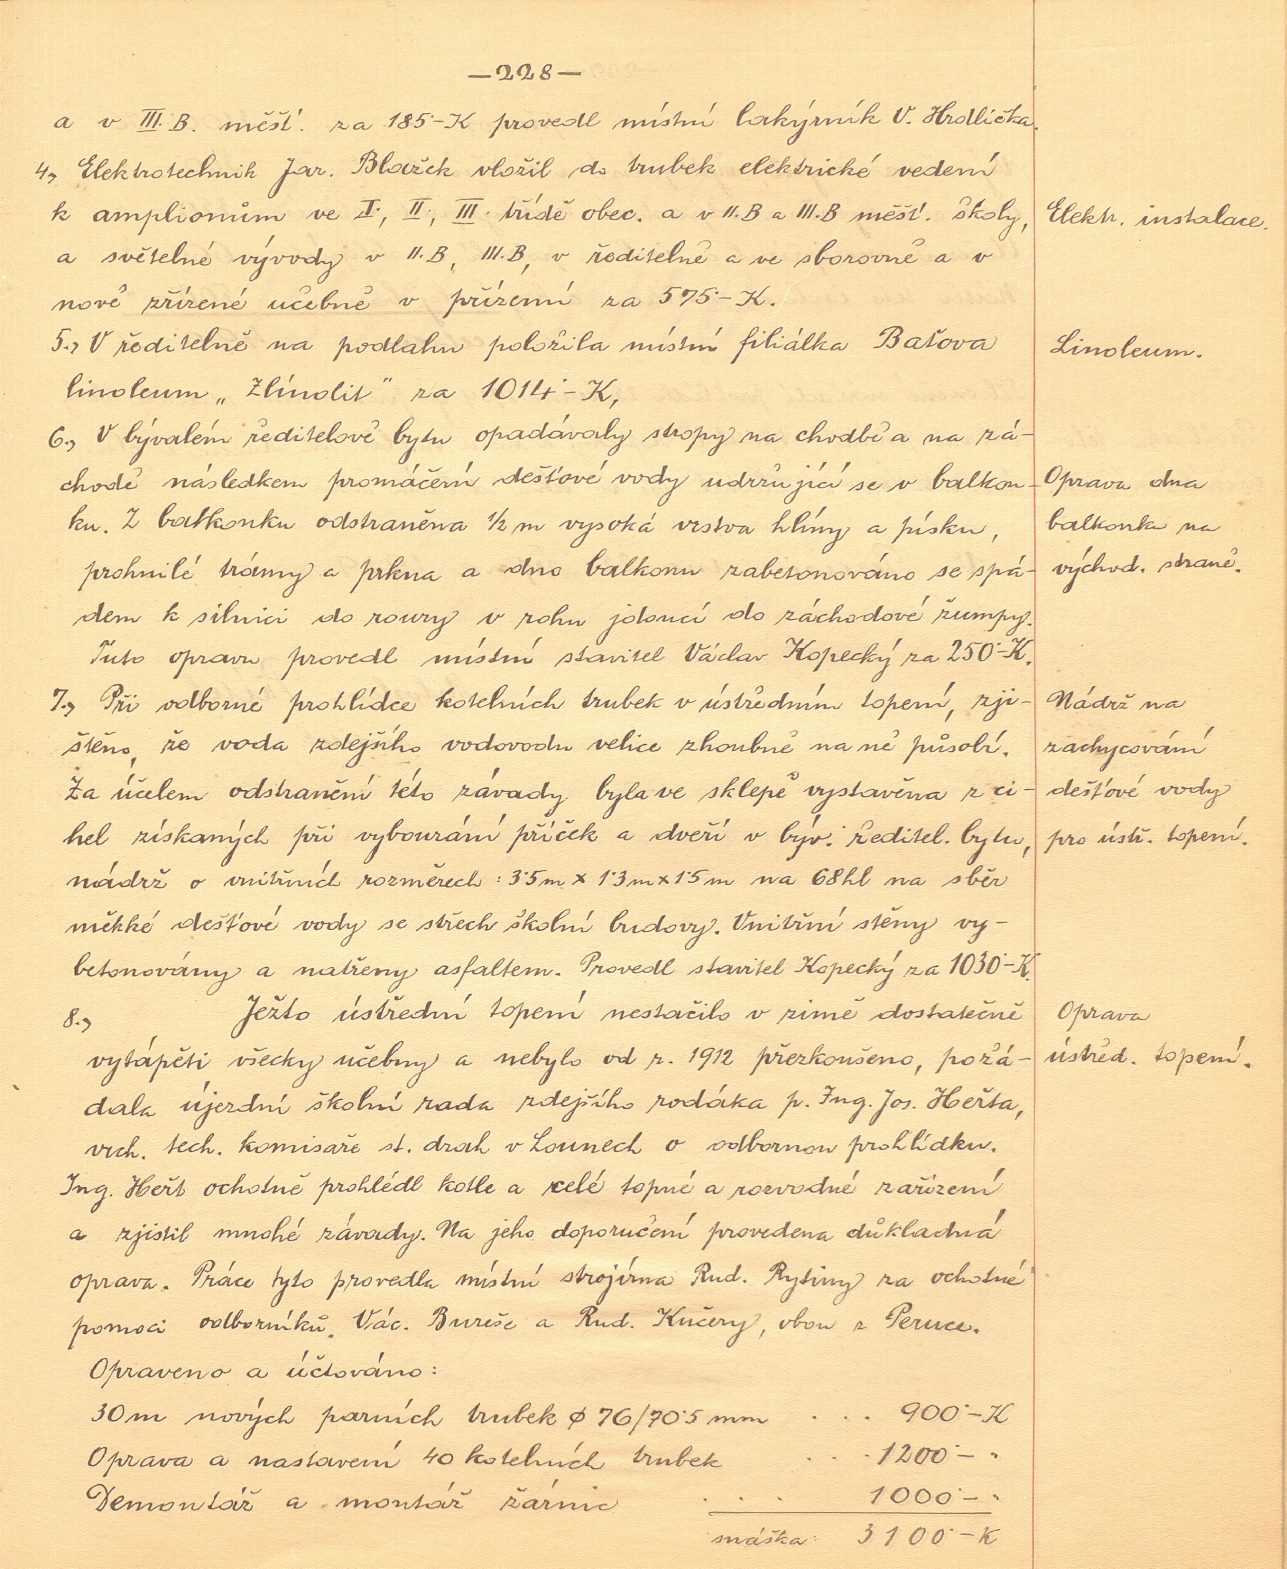 —228—
a v III.B. měšť. za 185·-K provedl místní lakýrník V. Hrdlička.
4., Elektrotechnik Jar. Blažek vložil do trubek elektrické vedení
k amplionům ve I., II., III. třídě obec. a v II.B a III.B měšť. školy,
Elektr. instalace.
a světelné vývody v II.B, III.B, v ředitelně a ve sborovně a v
nově zřízené učebně v přízemí za 575·-K.
5., V ředitelně na podlahu položila místní filiálka Baťova
Linoleum.
linoleum „Zlínolit" za 1014·-K,
6., V bývalém ředitelově bytu opadávaly stropy na chodbě a na zá-
chodě následkem promáčení dešťové vody udržující se v balkon-
Oprava dna
ku. Z balkonku odstraněna 1/2 m vysoká vrstva hlíny a písku,
balkonku na
prohnilé trámy a prkna a dno balkonu zabetonováno se spá-
východ. straně.
dem k silnici do roury v rohu jdoucí do záchodové žumpy.
Tuto opravu provedl místní stavitel Václav Kopecký za 250·-K.
7., Při odborné prohlídce kotelních trubek v ústředním topení, zji-
Nádrž na
štěno, že voda zdejšího vodovodu velice zhoubně na ně působí.
zachycování
Za účelem odstranění této závady byla ve sklepě vystavěna z ci-
dešťové vody
hel získaných při vybourání příček a dveří v býv. ředitel. bytu,
pro ústř. topení.
nádrž o vnitřních rozměrech: 3·5 m x 1·3 m x 1·5 m na 68 hl na sběr
měkké dešťové vody se střech školní budovy. Vnitřní stěny vy-
betonovány a natřeny asfaltem. Provedl stavitel Kopecký za 1030·-K.
8., Ježto ústřední topení nestačilo v zimě dostatečně
Oprava
vytápěti všecky učebny a nebylo od r. 1912 přezkoušeno, požá-
ústřed. topení.
dala újezdní školní rada zdejšího rodáka p. Ing. Jos. Heřta,
vrch. tech. komisaře st. drah v Lounech o odbornou prohlídku.
Ing. Heřt ochotně prohlédl kotle a celé topné a rozvodné zařízení
a zjistil mnohé závady. Na jeho doporučení provedena důkladná
oprava. Práce tyto provedla místní strojírna Rud. Rytiny za ochotné
pomoci odborníků, Vác. Bureše a Rud. Kučery, obou z Peruce.
Opraveno a účtováno:
30 m nových parních trubek ø 76/70·5 mm . . . 900·-K
Oprava a nastavení 40 kotelních trubek . . . 1200·- "
Demontáž a montáž žárnic . . . 1000·- "
snáška: 3100·-K